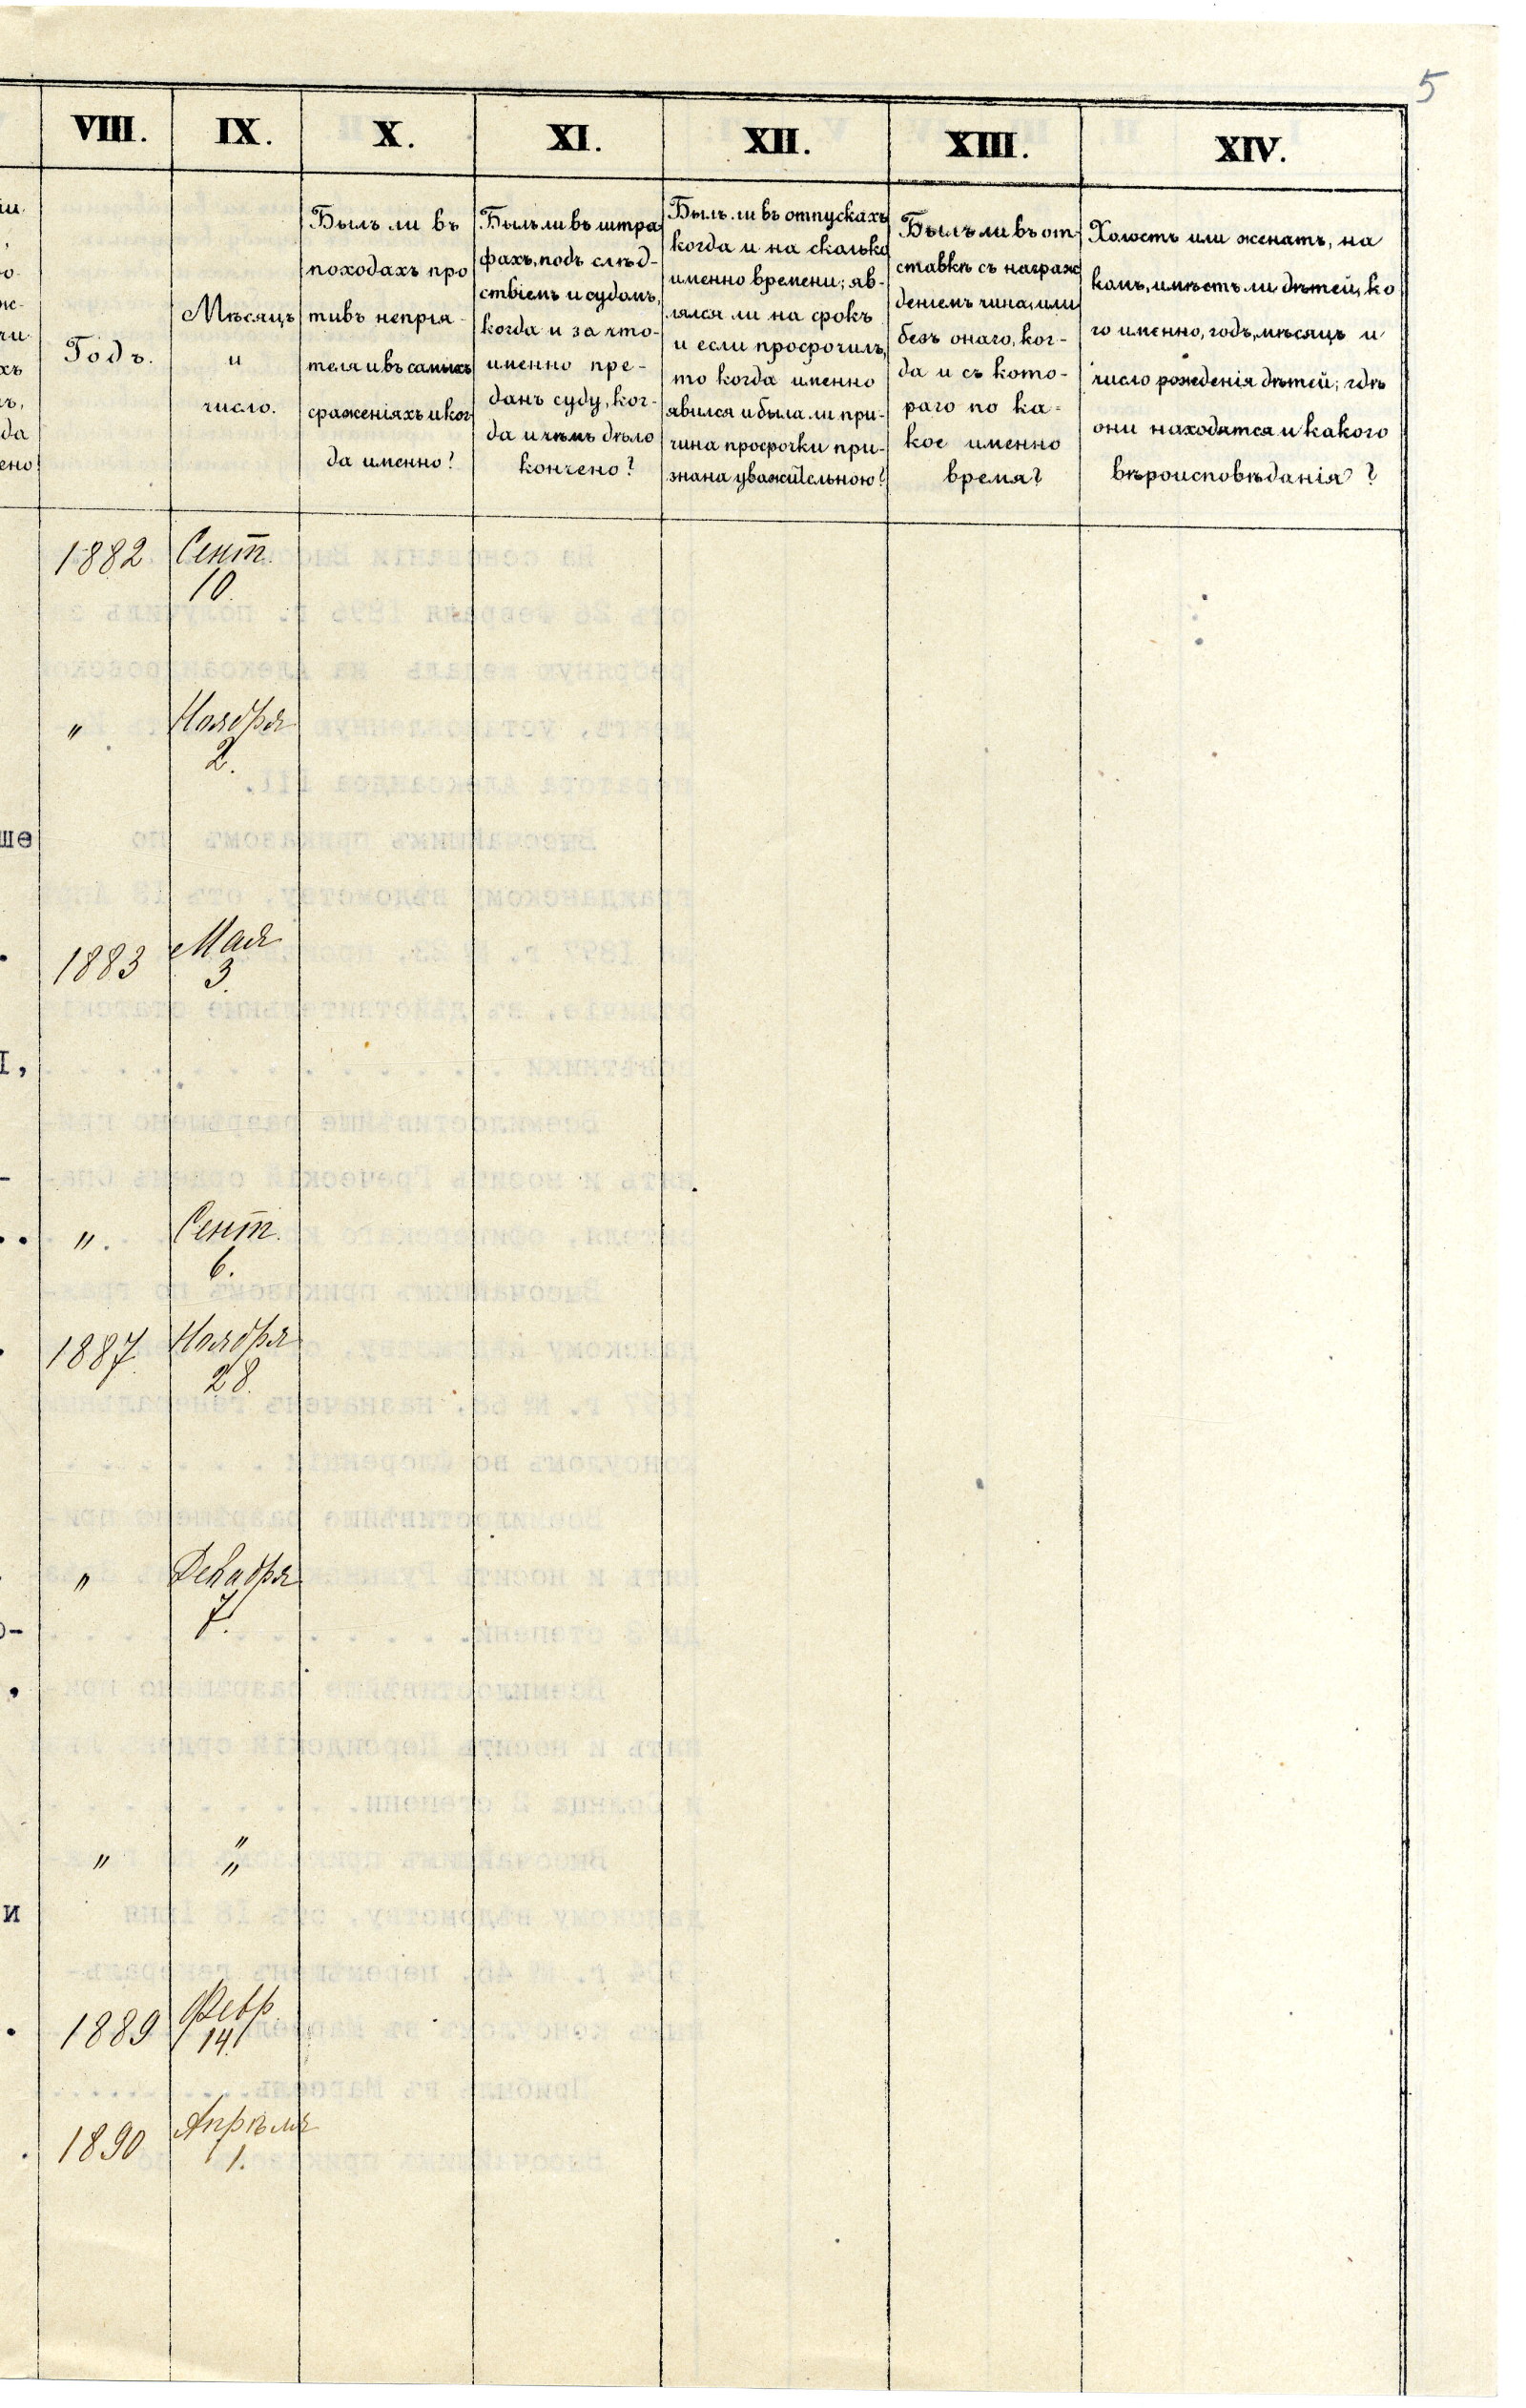 5
VIII. IX. X. XI. XII. XIII. XIV.
Годъ.
Мѣсяцъ
и
число.
Былъ ли въ
походахъ про
тивъ непрія-
теля и въ самыхъ
сраженіяхъ и ког
да именно?
Былъ ли въ штра
фахъ, подъ слѣд-
ствіемъ и судомъ,
когда и за что-
именно пре-
данъ суду, ког-
да и чѣмъ дѣло
кончено?
Былъ ли въ отпускахъ
когда и на сколько
именно времени; яв-
лялся ли на срокъ
и если просрочилъ,
то когда именно
явился и была ли при-
чина просрочки при-
знана уважительною?
Былъ ли въ от-
ставкѣ съ награж
деніемъ чина, или
безъ онаго, ког-
да и съ кото-
раго по ка-
кое именно
время?
Холостъ или женатъ, на
комъ, имѣетъ ли дѣтей, ко
го именно, годъ, мѣсяцъ и
число рожденія дѣтей; гдѣ
они находятся и какого
вѣроисповѣданія?
1882 Сент.
10.
" Ноября
2.
ше
1883 Мая
3.
". Сент.
6.
1887. Ноября
28.
" Декабря
7.
" "
"
и
1889 Февр.
14.
1890 Апрѣля
1.